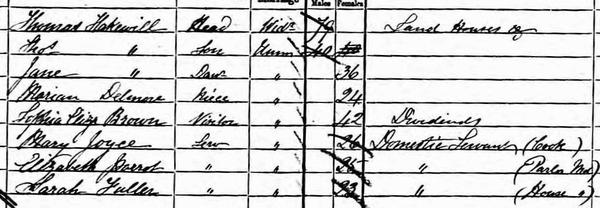 Males Females
Thomas Hakewill Head Widr 79 Land Houses &c
Thos " Son Unm 40
Jane " Daur " 36
Marian Niece " 24
Sophia Eliz Brown Visitor " 42 Dividends
Mary Joyce Serv " 26 Domestic Servant (Cook)
Elizabeth Barrot " " 25 " (Parlor Md)
Sarah Fuller " " 23 " (House ")